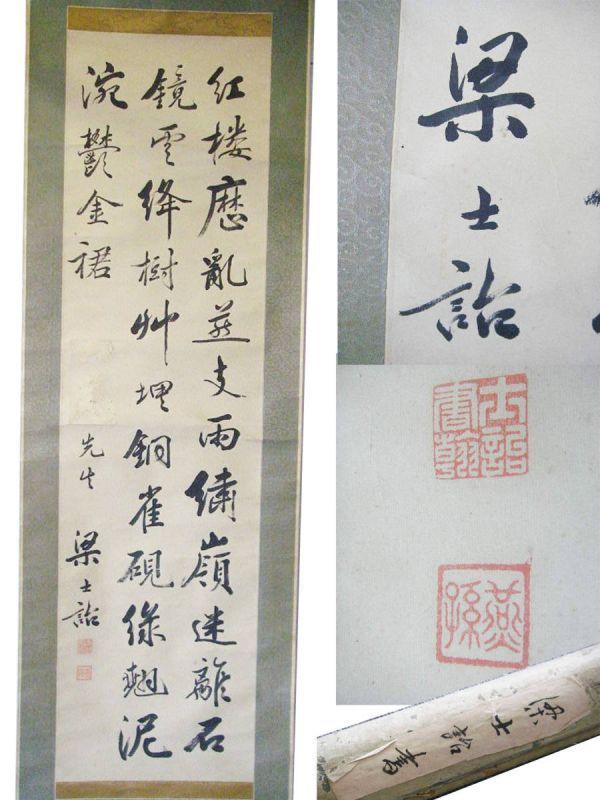 紅楼歷亂燕支雨繡嶺迷離石
鏡雲絳樹艸埋銅雀硯綠翹泥
涴鬱金裙
先生
梁士詒
梁士詒
士詒書翰
燕孫
梁士詒書